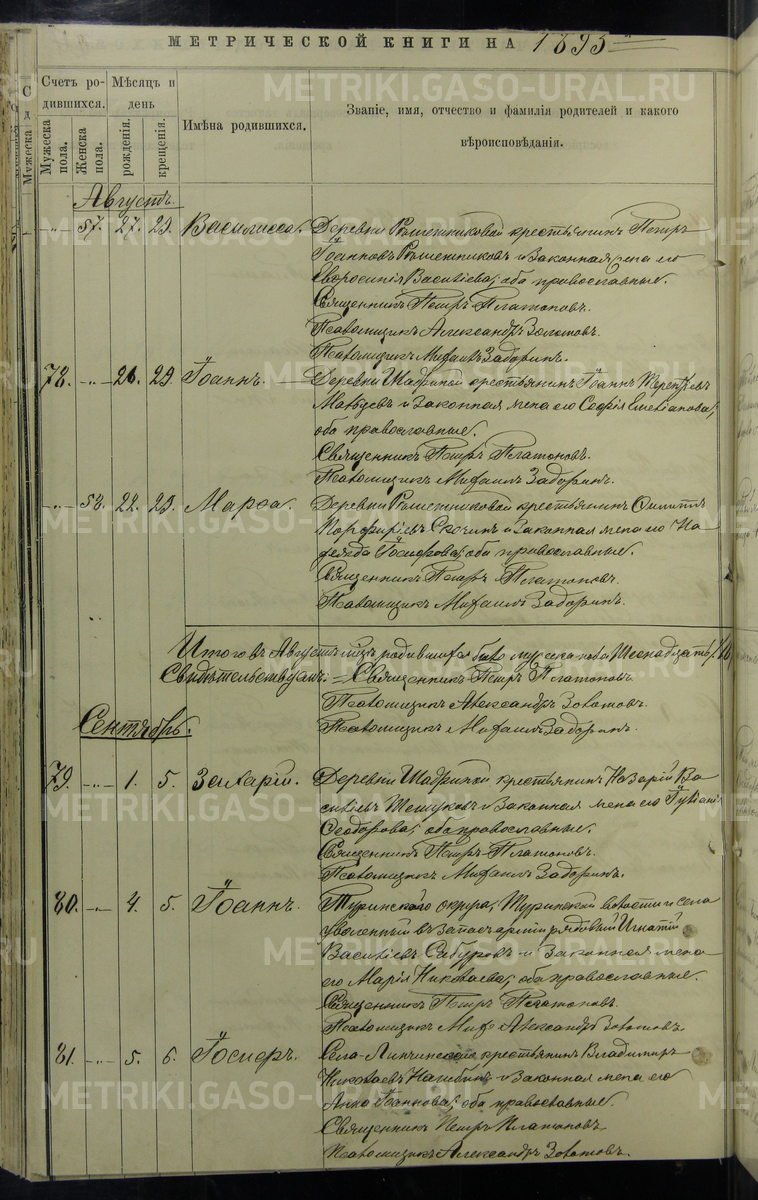 МЕТРИЧЕСКОЙ КНИГИ НА 1895
METRIKI.GASO-URAL.RU
Счетъ родившихся. Мѣсяцъ и день Имѣна родившихся. Званіе, имя, отчество и фамилія родителей и какого вѣроисповѣданія.
Мужеска пола. Женска пола. рождения. крещенія.
Мужеска
Августъ.
57. 27. 29. Василисса. Деревни Решетниковой крестьянинъ Петръ
Іоанновъ Решетниковъ и законная жена его
Евфросинія Васильева, оба православные.
Священникъ Петръ Платоновъ.
Псаломщикъ Александръ Золотовъ.
Псаломщикъ Михаилъ Задоринъ.
78. 26. 29. Іоаннъ. Деревни Шадриной крестьянинъ Іоаннъ Терентьев
и законная жена его Софія Емельянова,
оба православные.
Священникъ Петръ Платоновъ.
Псаломщикъ Михаилъ Задоринъ.
58. 28. 29. Марѳа. Деревни Решетниковой крестьянинъ
Порфирьевъ и законная жена его На
дежда Іосифова, оба православные.
Священникъ Петръ Платоновъ.
Псаломщикъ Михаилъ Задоринъ.
Итого въ Августѣ м-цѣ родившихся было мужеска пола Шестнадцать /16
Свидѣтельствуемъ: Священникъ Петръ Платоновъ
Псаломщикъ Александръ Золотовъ.
Псаломщикъ Михаилъ Задоринъ.
Сентябрь.
79. 1. 5. Захарій. Деревни Шадриной крестьянинъ Назарій Ва
сильевъ и законная жена его Іуліанія
Ѳеодорова, оба православные.
Священникъ Петръ Платоновъ.
Псаломщикъ Михаилъ Задоринъ.
80. 4. 5. Іоаннъ. Туринскаго округа, Туринской волости и села
уволенный въ запасъ арміи рядовый Игнатій
Васильевъ Сабуровъ и законная жена
его Марія Николаева, оба православные.
Священникъ Петръ Платоновъ.
Псаломщикъ Александръ Золотовъ.
81. 5. 6. Іосифъ. Села Липчинскаго крестьянинъ Владимиръ
Николаевъ Нагибинъ и законная жена его
Анна Іоаннова, оба православные.
Священникъ Петръ Платоновъ
Псаломщикъ Александръ Золотовъ.